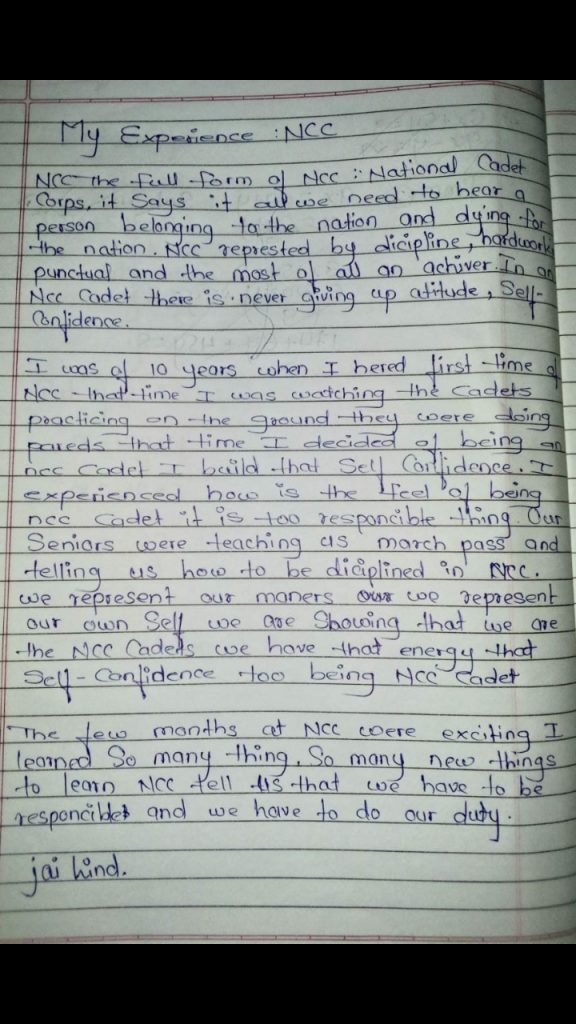 My Experience : NCC
NCC the full form of NCC :- National Cadet
Corps, it Says it all we need to hear a
person belonging to the nation and dying for
the nation. NCC represted by dicipline, hardwork
punctual and the most of all an achiver. In an
Ncc Cadet there is never giving up atitude, Self-
Confidence.
I was of 10 years when I hered first time of
NCC that time I was watching the Cadets
practicing on the ground they were doing
pareds that time I decided of being an
ncc cadet I build that Self Confidence. I
experienced how is the feel of being
ncc cadet it is too responcible thing. Our
Seniors were teaching us march pass and
telling us how to be diciplined in NCC.
we represent our maners we represent
our own Self we are Showing that we are
the NCC Cadets we have that energy that
Self-Confidence too being NCC cadet
The few months at NCC were exciting I
learned So many thing. So many new things
to learn NCC tell us that we have to be
responcible and we have to do our duty.
jai hind.